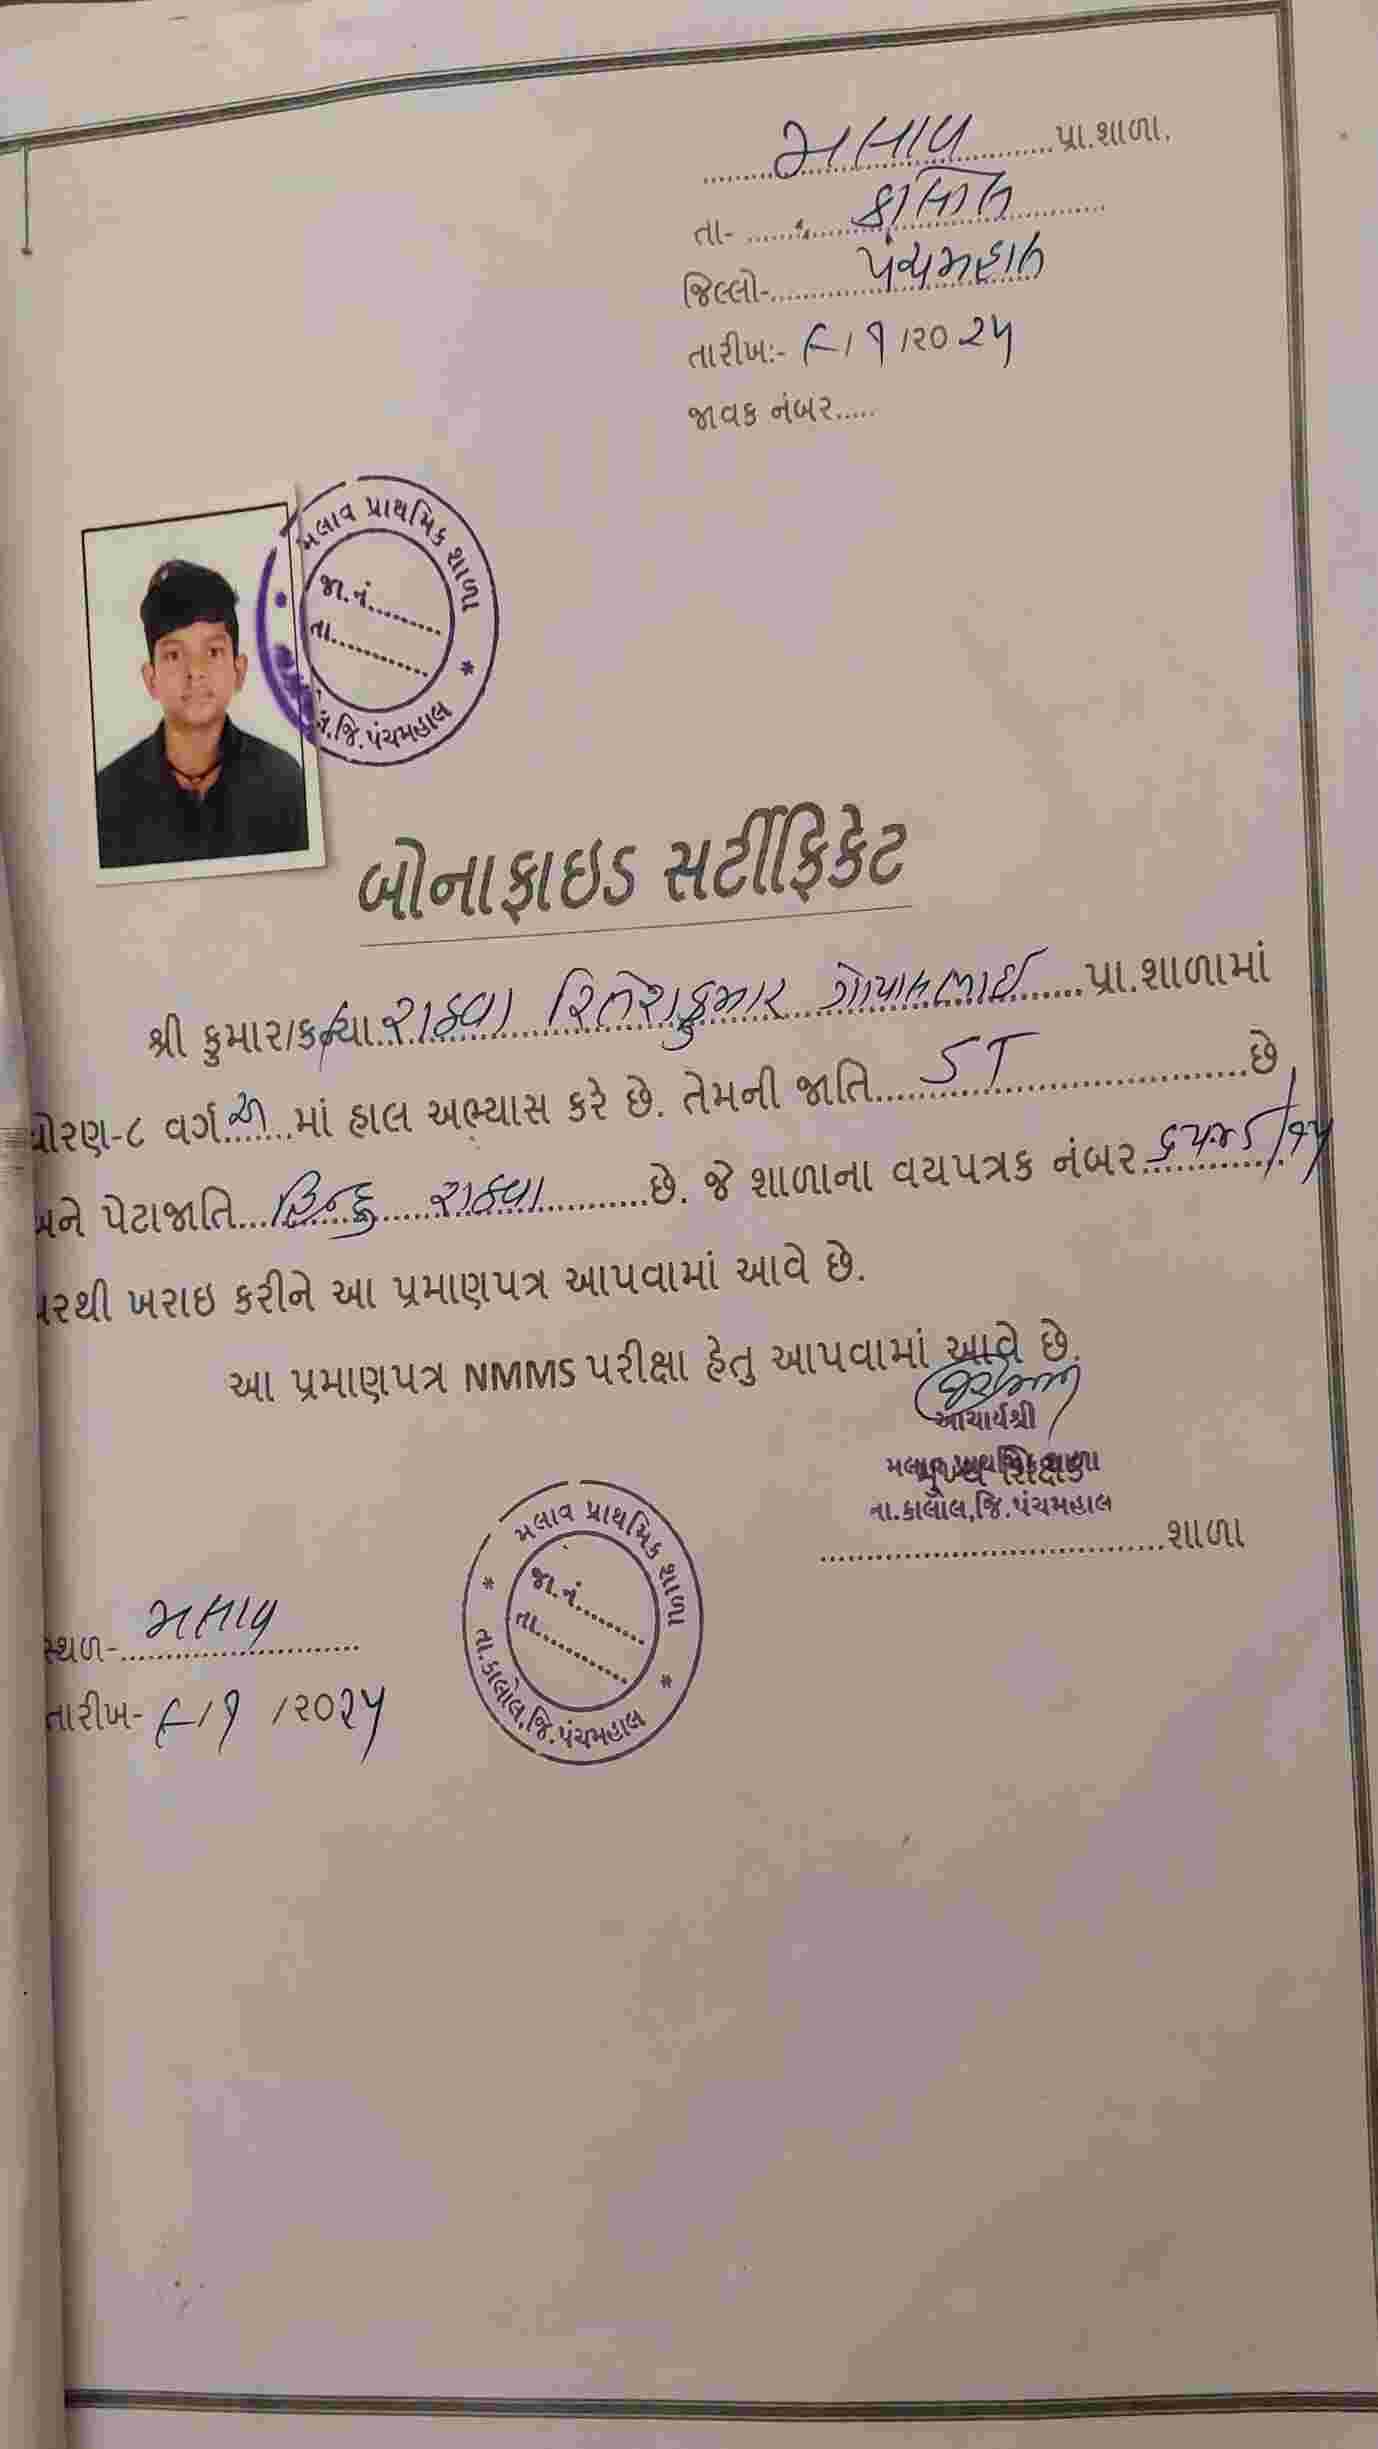 મલાવ પ્રા.શાળા.
તા- કાલોલ
જિલ્લો- પંચમહાલ
તારીખ:- ૯/૧/૨૦૨૫
જાવક નંબર.....
મલાવ પ્રાથમિક શાળા
જા.નં.........
તા............
જિ.પંચમહાલ
બોનાફાઇડ સર્ટીફિકેટ
શ્રી કુમાર/કન્યા રાઠવા રિતેશકુમાર ગોપાલભાઈ પ્રા.શાળામાં
ધોરણ-૮ વર્ગ અ માં હાલ અભ્યાસ કરે છે. તેમની જાતિ ST છે,
અને પેટાજાતિ હિન્દુ રાઠવા છે. જે શાળાના વયપત્રક નંબર
પરથી ખરાઇ કરીને આ પ્રમાણપત્ર આપવામાં આવે છે.
આ પ્રમાણપત્ર NMMS પરીક્ષા હેતુ આપવામાં આવે છે.
આચાર્યશ્રી
મલાવ પ્રાથમિક શાળા
મુખ્ય શિક્ષક
તા.કાલોલ,જિ.પંચમહાલ
..................શાળા
મલાવ પ્રાથમિક શાળા
જા.નં.........
તા............
તા.કાલોલ,જિ.પંચમહાલ
સ્થળ- મલાવ
તારીખ- ૯/૧/૨૦૨૫